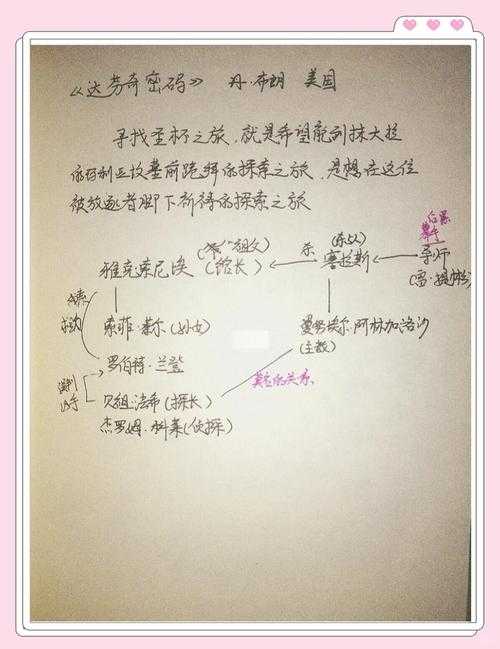 《达芬奇密码》 丹·布朗 美国
寻找圣杯之旅,就是希望能到抹大拉
的玛利亚坟墓前跪拜的探索之旅,是想在这位
被放逐者脚下祈祷的探索之旅
(祖父) (杀手) 幕后
雅克索尼埃 (馆长) ← 杀 塞拉斯 ← 导师
(雷·提彬)
求助
索菲·奈尔(孙女) 曼努埃尔·阿林加洛沙
罗伯特·兰登 (主教)
莫名的关系
贝祖·法希(探长)
杰罗姆·科莱(侦探)